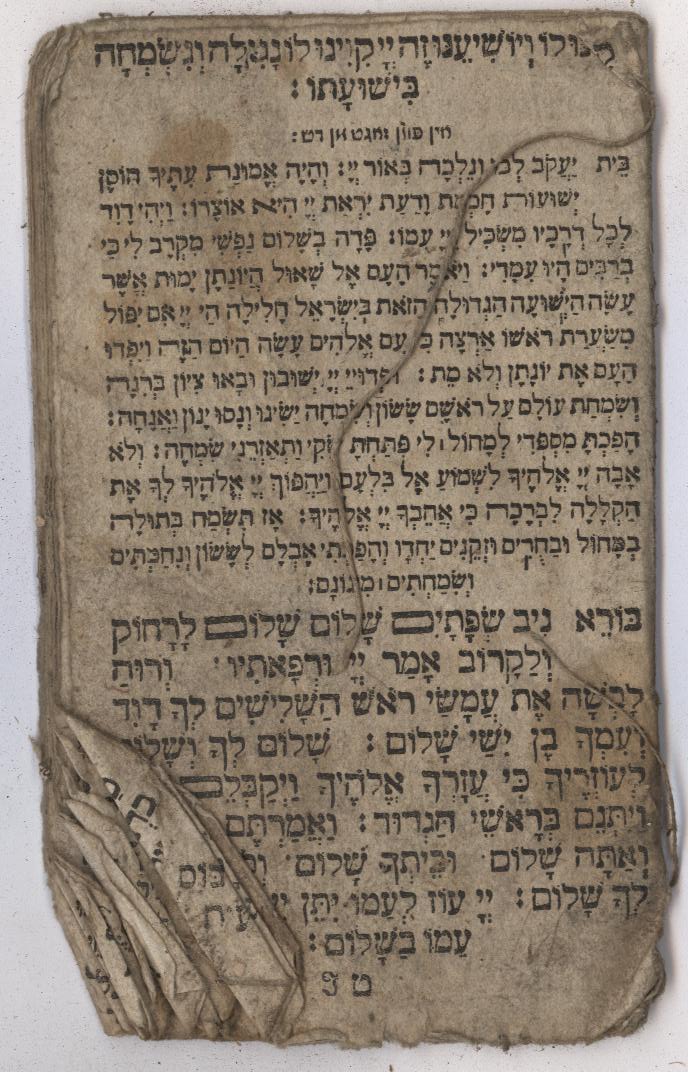 וְיוֹשִׁיעֵנוּ זֶה יְיָ קִוִּינוּ לוֹ נָגִילָה וְנִשְׂמְחָה
בִּישׁוּעָתוֹ:
דיא פוון זאגט מן
בֵּית יַעֲקֹב לְכוּ וְנֵלְכָה בְּאוֹר יְיָ: וְהָיָה אֱמוּנַת עִתֶּיךָ חוֹסֶן
יְשׁוּעוֹת חָכְמַת וָדַעַת יִרְאַת יְיָ הִיא אוֹצָרוֹ: וַיְהִי דָוִד
לְכָל דְּרָכָיו מַשְׂכִּיל וַיְיָ עִמּוֹ: פָּדָה בְשָׁלוֹם נַפְשִׁי מִקְּרָב לִי כִּי
בְרַבִּים הָיוּ עִמָּדִי: וַיֹּאמֶר הָעָם אֶל שָׁאוּל הֲיוֹנָתָן יָמוּת אֲשֶׁר
עָשָׂה הַיְשׁוּעָה הַגְּדוֹלָה הַזֹּאת בְּיִשְׂרָאֵל חָלִילָה חַי יְיָ אִם יִפּוֹל
מִשַּׂעֲרַת רֹאשׁוֹ אַרְצָה כִּי עִם אֱלֹהִים עָשָׂה הַיּוֹם הַזֶּה וַיִּפְדּוּ
הָעָם אֶת יוֹנָתָן וְלֹא מֵת: וּפְדוּיֵי יְיָ יְשׁוּבוּן וּבָאוּ צִיּוֹן בְּרִנָּה
וְשִׂמְחַת עוֹלָם עַל רֹאשָׁם שָׂשׂוֹן וְשִׂמְחָה יַשִּׂיגוּ וְנָסוּ יָגוֹן וַאֲנָחָה:
הָפַכְתָּ מִסְפְּדִי לְמָחוֹל לִי פִּתַּחְתָּ שַׂקִּי וַתְּאַזְּרֵנִי שִׂמְחָה: וְלֹא
אָבָה יְיָ אֱלֹהֶיךָ לִשְׁמוֹעַ אֶל בִּלְעָם וַיַּהֲפוֹךְ יְיָ אֱלֹהֶיךָ לְךָ אֶת
הַקְּלָלָה לִבְרָכָה כִּי אֲהֵבְךָ יְיָ אֱלֹהֶיךָ: אָז תִּשְׂמַח בְּתוּלָה
בְּמָחוֹל וּבַחֻרִים וּזְקֵנִים יַחְדָּו וְהָפַכְתִּי אֶבְלָם לְשָׂשׂוֹן וְנִחַמְתִּים
וְשִׂמַּחְתִּים מִיגוֹנָם:
בּוֹרֵא נִיב שְׂפָתָיִם שָׁלוֹם שָׁלוֹם לָרָחוֹק
וְלַקָּרוֹב אָמַר יְיָ וּרְפָאתִיו: וְרוּחַ
לָבְשָׁה אֶת עֲמָשַׂי רֹאשׁ הַשָּׁלִישִׁים לְךָ דָוִד
וְעִמְּךָ בֶן יִשַׁי שָׁלוֹם: שָׁלוֹם לְךָ וְשָׁלוֹם
לְעוֹזְרֶיךָ כִּי עֲזָרְךָ אֱלֹהֶיךָ וַיְקַבְּלֵם
וַיִּתְּנֵם בְּרָאשֵׁי הַגְּדוּד: וַאֲמַרְתֶּם
וְאַתָּה שָׁלוֹם וּבֵיתְךָ שָׁלוֹם
לְךָ שָׁלוֹם: יְיָ עוֹז לְעַמּוֹ יִתֵּן
עַמּוֹ בַשָּׁלוֹם: